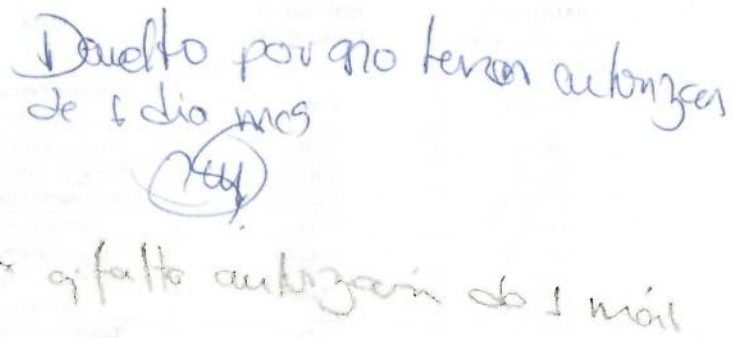 Devuelto por no tener autorizacon
de 1 dia mas
* q falta autorización de 1 más